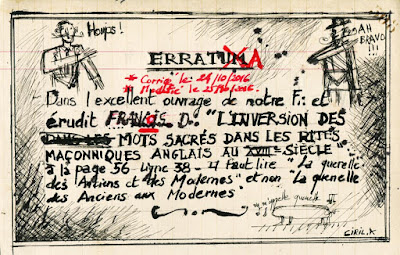 Houps!
AH
BRAVO
!!!
ERRATUMA
* Corrigé le: 21/10/2016
* Modifié le 25/10/2016.
Dans l'excellent ouvrage de notre F∴ et
érudit FRANCIS. D∴ "L'INVERSION DES
DANS LES MOTS SACRÉS DANS LES RITES
MAÇONNIQUES ANGLAIS AU XVIIIe SIÈCLE"
à la page 56 Ligne 38 - il faut lire "La querelle
des Anciens et des Modernes" et non "La quenelle
des Anciens aux Modernes"
CIRIL.K